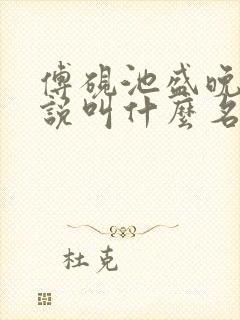 傅硯池盛晚
說叫什麼名
杜克